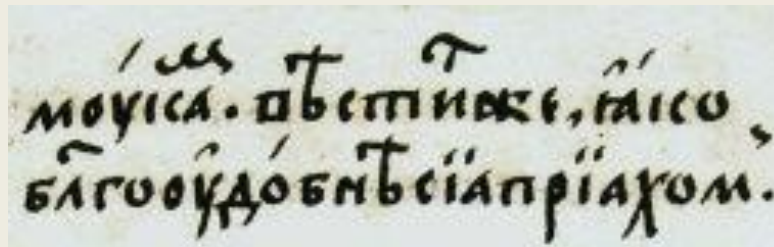 моу́каⷨ. вѣстиⷮже, ꙗ҆́ко
бл҃гооу҆до́бнѣсїапрїахом.